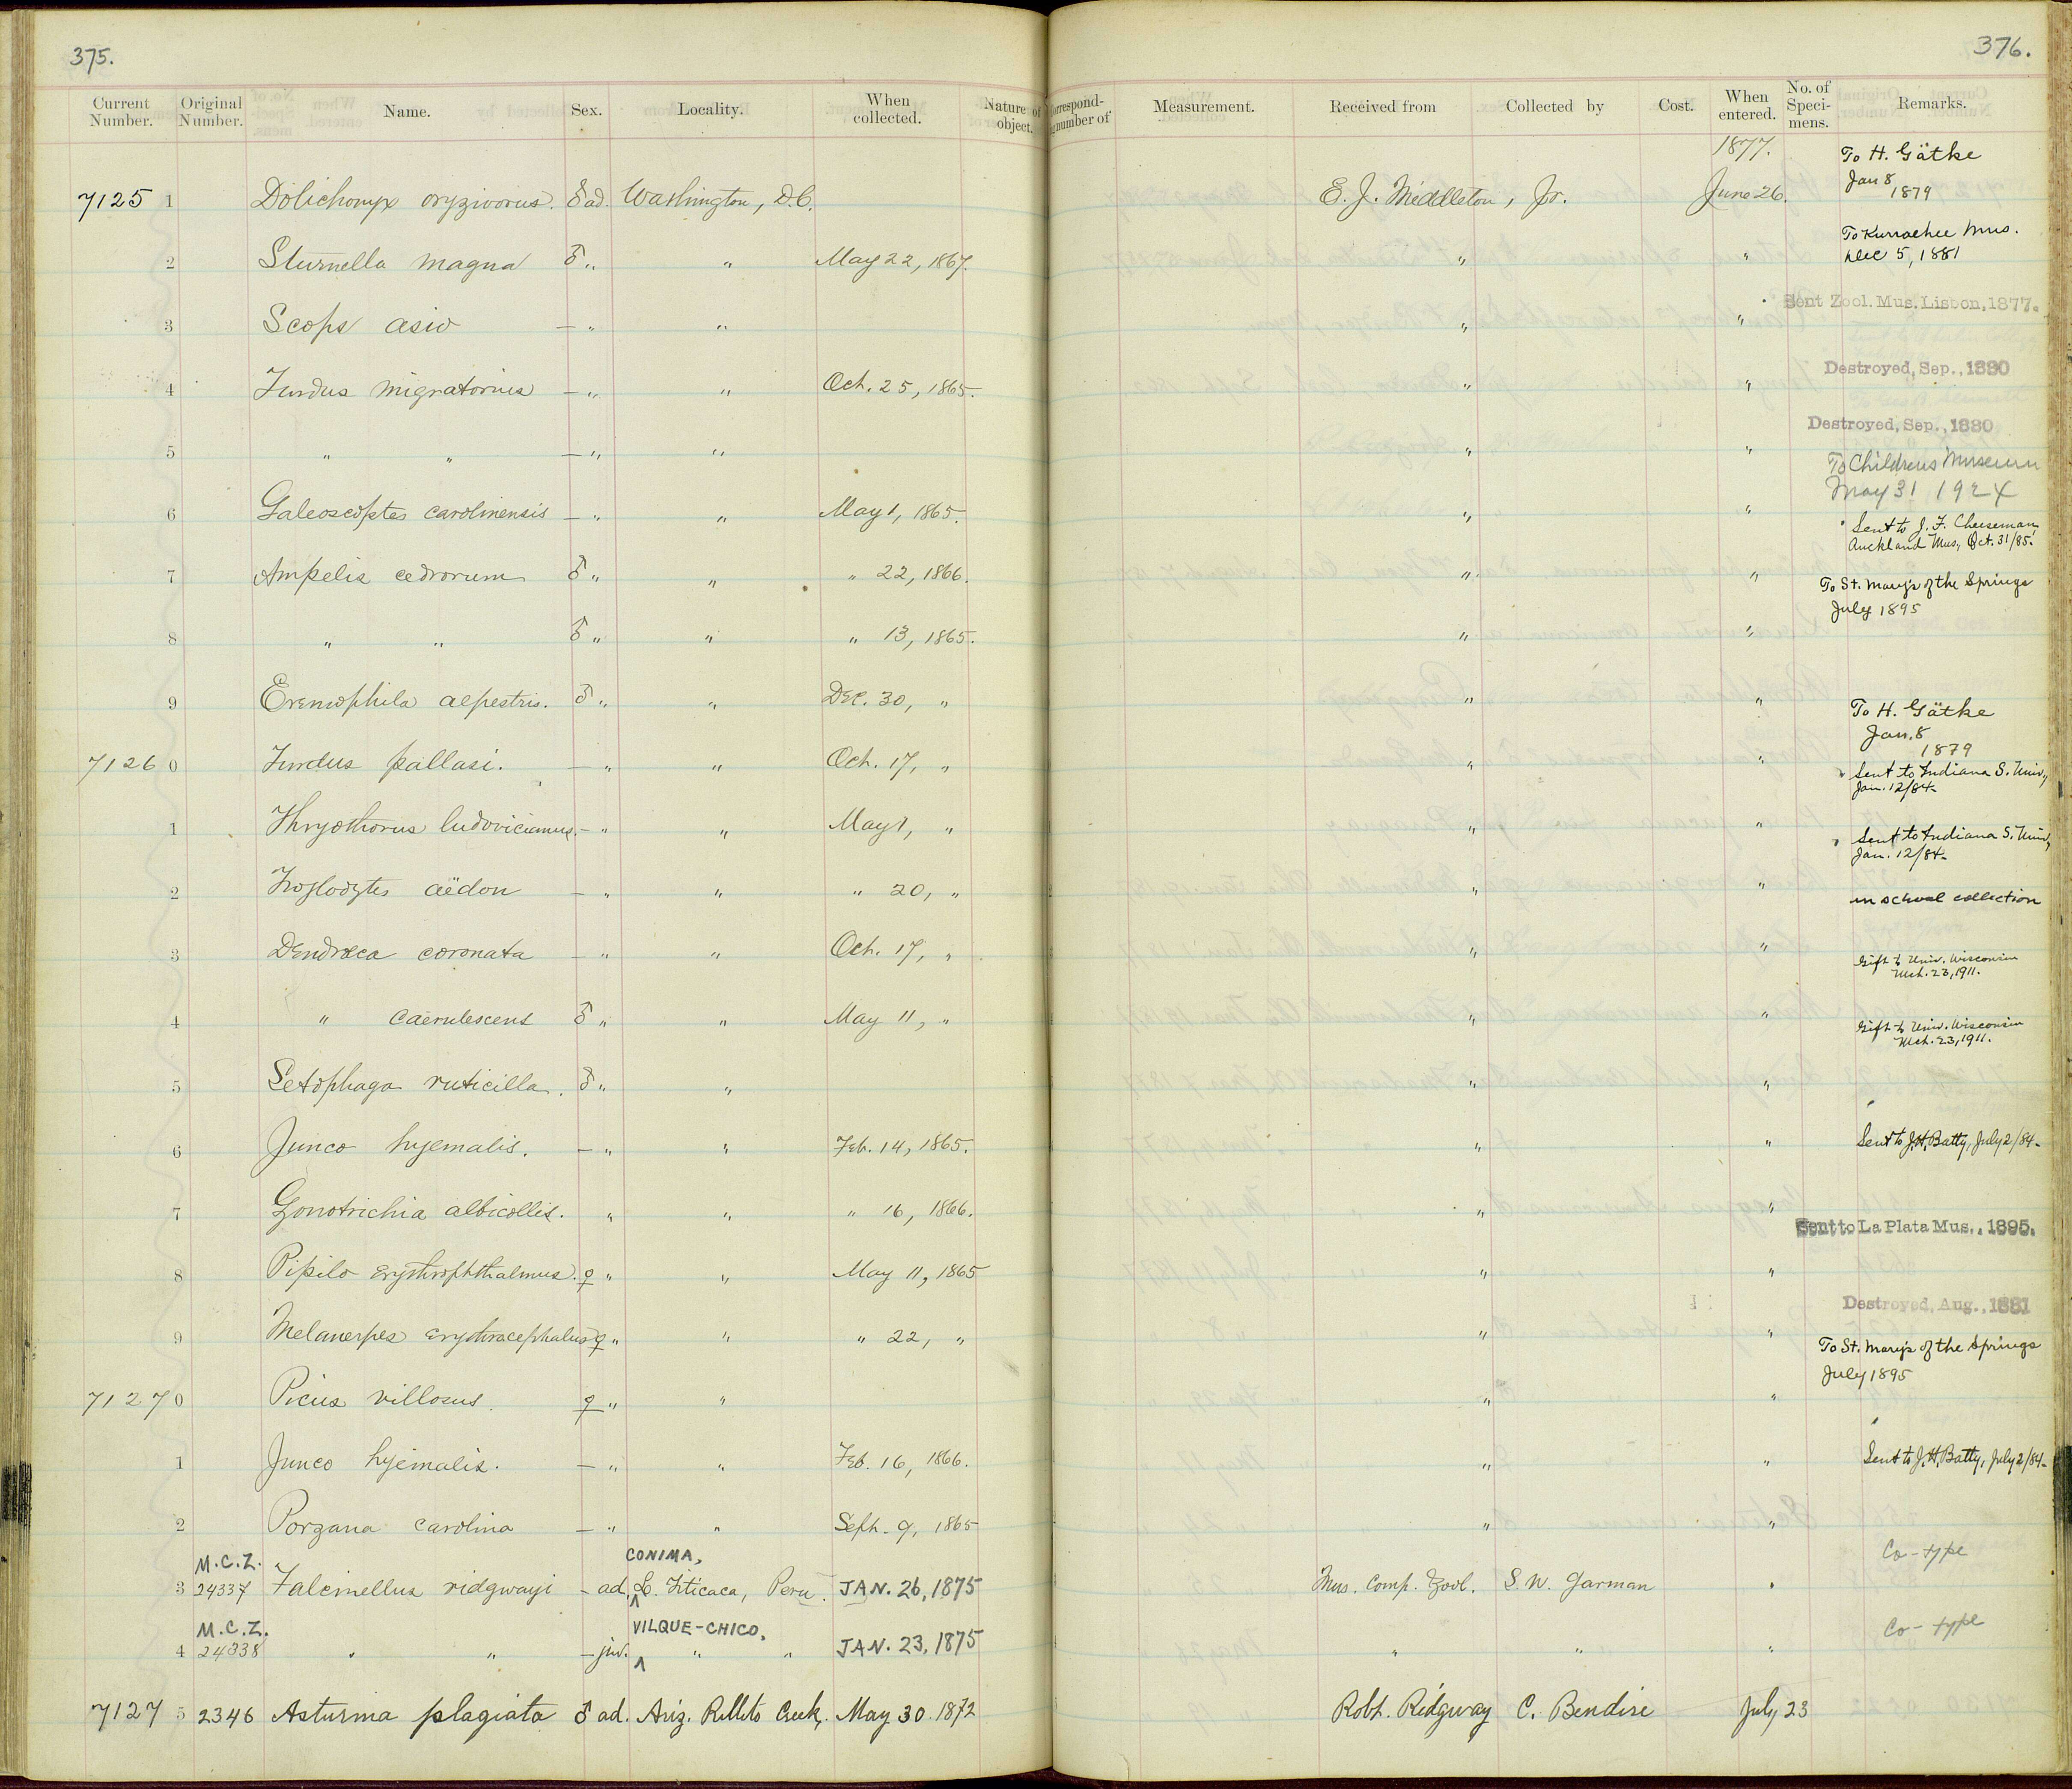 375.
376.
Current Number. Original Number. Name. Sex. Locality. When collected. Nature of object. Correspond- number of Measurement. Received from Collected by Cost. When entered. No. of Speci- mens. Remarks.
1877.
71251 Dolichonyx oryzivorus. ♂ ad. Washington, D.C. E. J. Middleton, Jr. June 26. To H. Gätke Jan 8 1879
2 Sturnella magna ♂ " " May 22, 1867. " " To Kurrachee Mus. Dec 5, 1881
3 Scops asio — " " " " Sent Zool. Mus. Lisbon, 1877.
4 Turdus migratorius — " " Oct. 25, 1865. " " Destroyed, Sep., 1880
5 " " — " " " " Destroyed, Sep., 1880
To Childrens Museum May 31 1924
6 Galeoscoptes carolinensis — " " May 1, 1865. " " Sent to J. F. Cheeseman, Auckland Mus, Oct. 31/85.
7 Ampelis cedrorum ♂ " " " 22, 1866. " " To St. Mary's of the Springs July 1895
8 " " ♂ " " " 13, 1865. " "
9 Eremophila alpestris. ♂ " " Dec. 30, " " " To H. Gätke Jan. 8 1879
71260 Turdus pallasi. — " " Oct. 17, " " " Sent to Indiana S. Univ, Jan. 12/84
1 Thryothorus ludovicianus. — " " May 1, " " " Sent to Indiana S. Univ, Jan. 12/84
2 Troglodytes aëdon — " " " 20, " " " in school collection
3 Dendroeca coronata — " " Oct. 17, " " " Gift to Univ. Wisconsin Mch. 23, 1911.
4 " caerulescens ♂ " " May 11, " " " Gift to Univ. Wisconsin Mch. 23, 1911.
5 Setophaga ruticilla. ♂ " " " "
6 Junco hyemalis. — " " Feb. 14, 1865. " " Sent to J.H. Batty, July 2/84
7 Zonotrichia albicollis. " " " 16, 1866. " " Sent to La Plata Mus., 1895.
8 Pipilo erythrophthalmus. ♀ " " May 11, 1865 " "
Destroyed, Aug., 1881
9 Melanerpes erythrocephalus ♀ " " " 22, " " " To St. Mary's of the Springs July 1895
71270 Picus villosus. ♀ " " " "
1 Junco hyemalis. — " " Feb. 16, 1866. " " Sent to J.H. Batty, July 2/84
2 Porzana carolina — " " Sept. 9, 1865 " "
M.C.Z. CONIMA, Co-type
3 24337 Falcinellus ridgwayi — ad. L. Titicaca, Peru. JAN. 26, 1875 Mus. Comp. Zool. S. W. Garman "
M.C.Z. VILQUE-CHICO, Co-type
4 24338 " " — juv. " " JAN. 23, 1875 " " "
71275 2346 Asturina plagiata ♂ ad. Ariz. Rillito Creek, May 30. 1872 Robt. Ridgway C. Bendire July 23